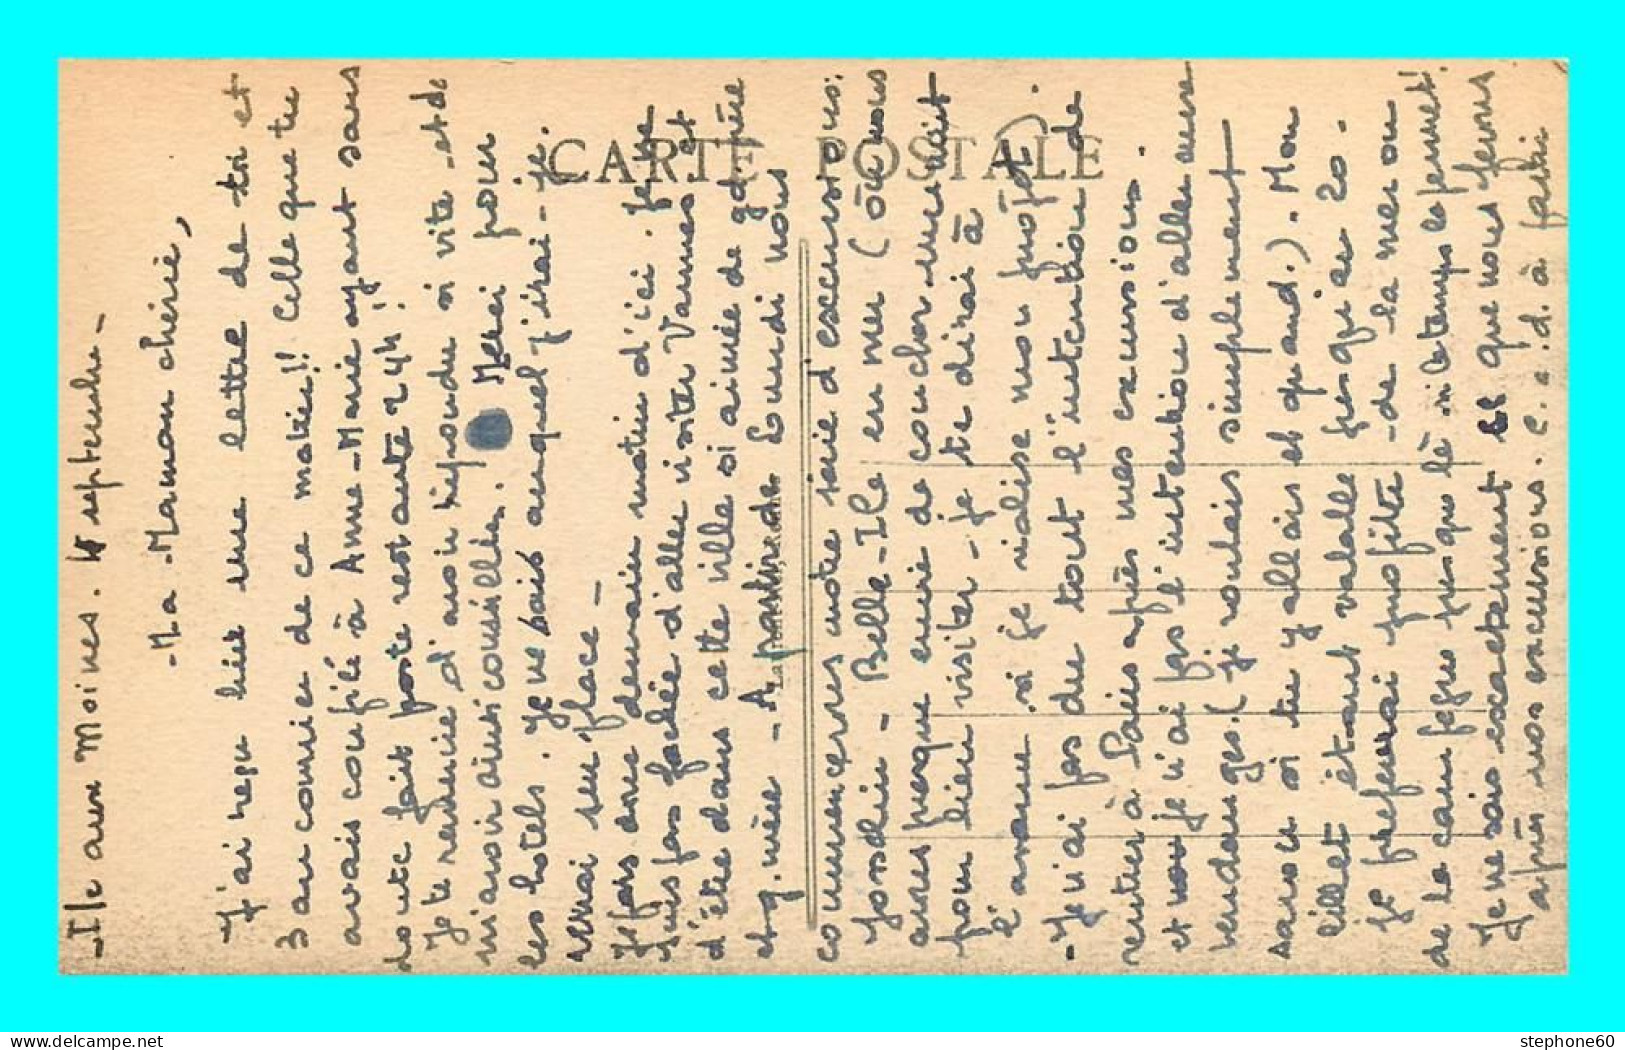 -Ile aux Moines. septembre-
-Ma Maman chérie,
J'ai reçu hier une lettre de toi et
3 au courrier de ce matin!! Celle que tu
avais confiée à Anne-Marie ayant sans
doute fait poste restante 24h!
Je te remercie d'avoir répondu si vite - et de
m'avoir ainsi conseillée. Merci pour
les hotels. Je ne sais auquel j'irai - je
verrai sur place -
Je pars donc demain matin d'ici. Je ne
suis pas fachée d'aller visiter Vannes et
d'être dans cette ville si aimée de gd. père
et gd. mère - A partir de Lundi nous
commencerons notre série d'excursions:
Josselin - Belle-Ile en mer (où nous
avons presque envie de coucher une nuit
pour bien visiter - je te dirai à
l'avance si je réalise mon projet).
-Je n'ai pas du tout l'intention de
rentrer à Paris après mes excursions.
et je n'ai pas l'intention d'aller aux
vendanges. (je voulais simplement
savoir si tu y allais et quand.). Mon
billet étant valable jusqu'au 20.
je profite de la mer ou
de la campagne puisque le temps le permet!
Je ne sais exactement que nous ferons
après nos excursions. c.a.d. à partir
CARTE POSTALE
stephone60